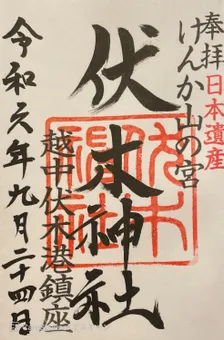 奉拝
日本遺産
けんか山の宮
伏木神社
越中伏木港鎮座
令和元年九月二十四日